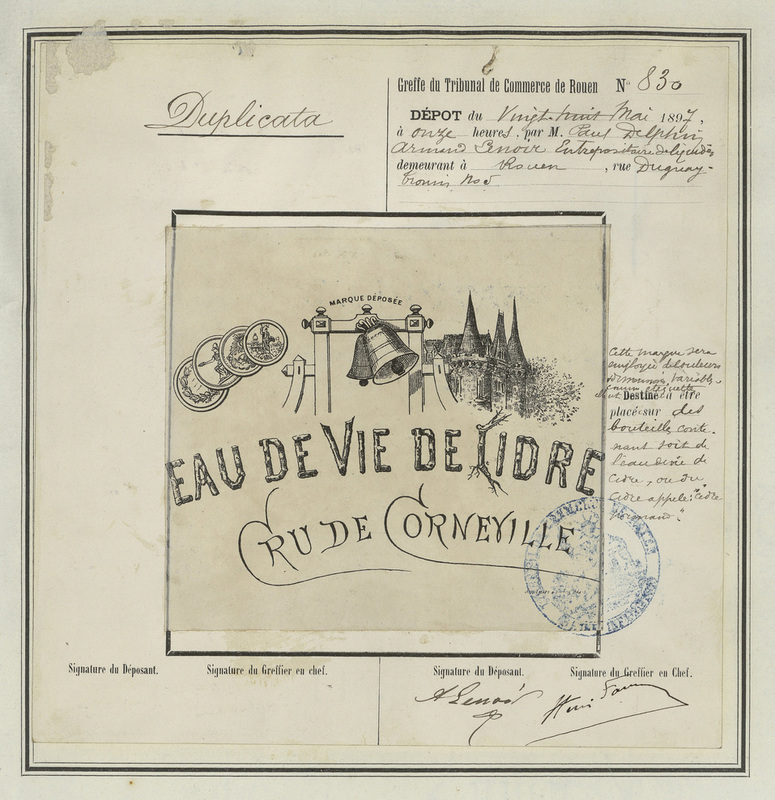 Duplicata
Greffe du Tribunal de Commerce de Rouen N° 830
DÉPOT du Vingt huit Mai 1897,
à onze heures, par M. Paul Delphin
Armand Lenoir Entrepositaire de liquides
demeurant à Rouen, rue Duguay-
trouin No 5
MARQUE DÉPOSÉE
EAU DE VIE DE CIDRE
CRU DE CORNEVILLE
Cette marque sera
employée de couleurs
Dimensions variables
comme étiquette
Destiné à être
placé sur des
bouteilles conte-
nant soit de
l'eau de vie de
cidre, ou du
cidre appelé: "Cidre
Normand".
Signature du Déposant.
Signature du Greffier en chef.
Signature du Déposant.
Signature du Greffier en Chef.
A Lenoir